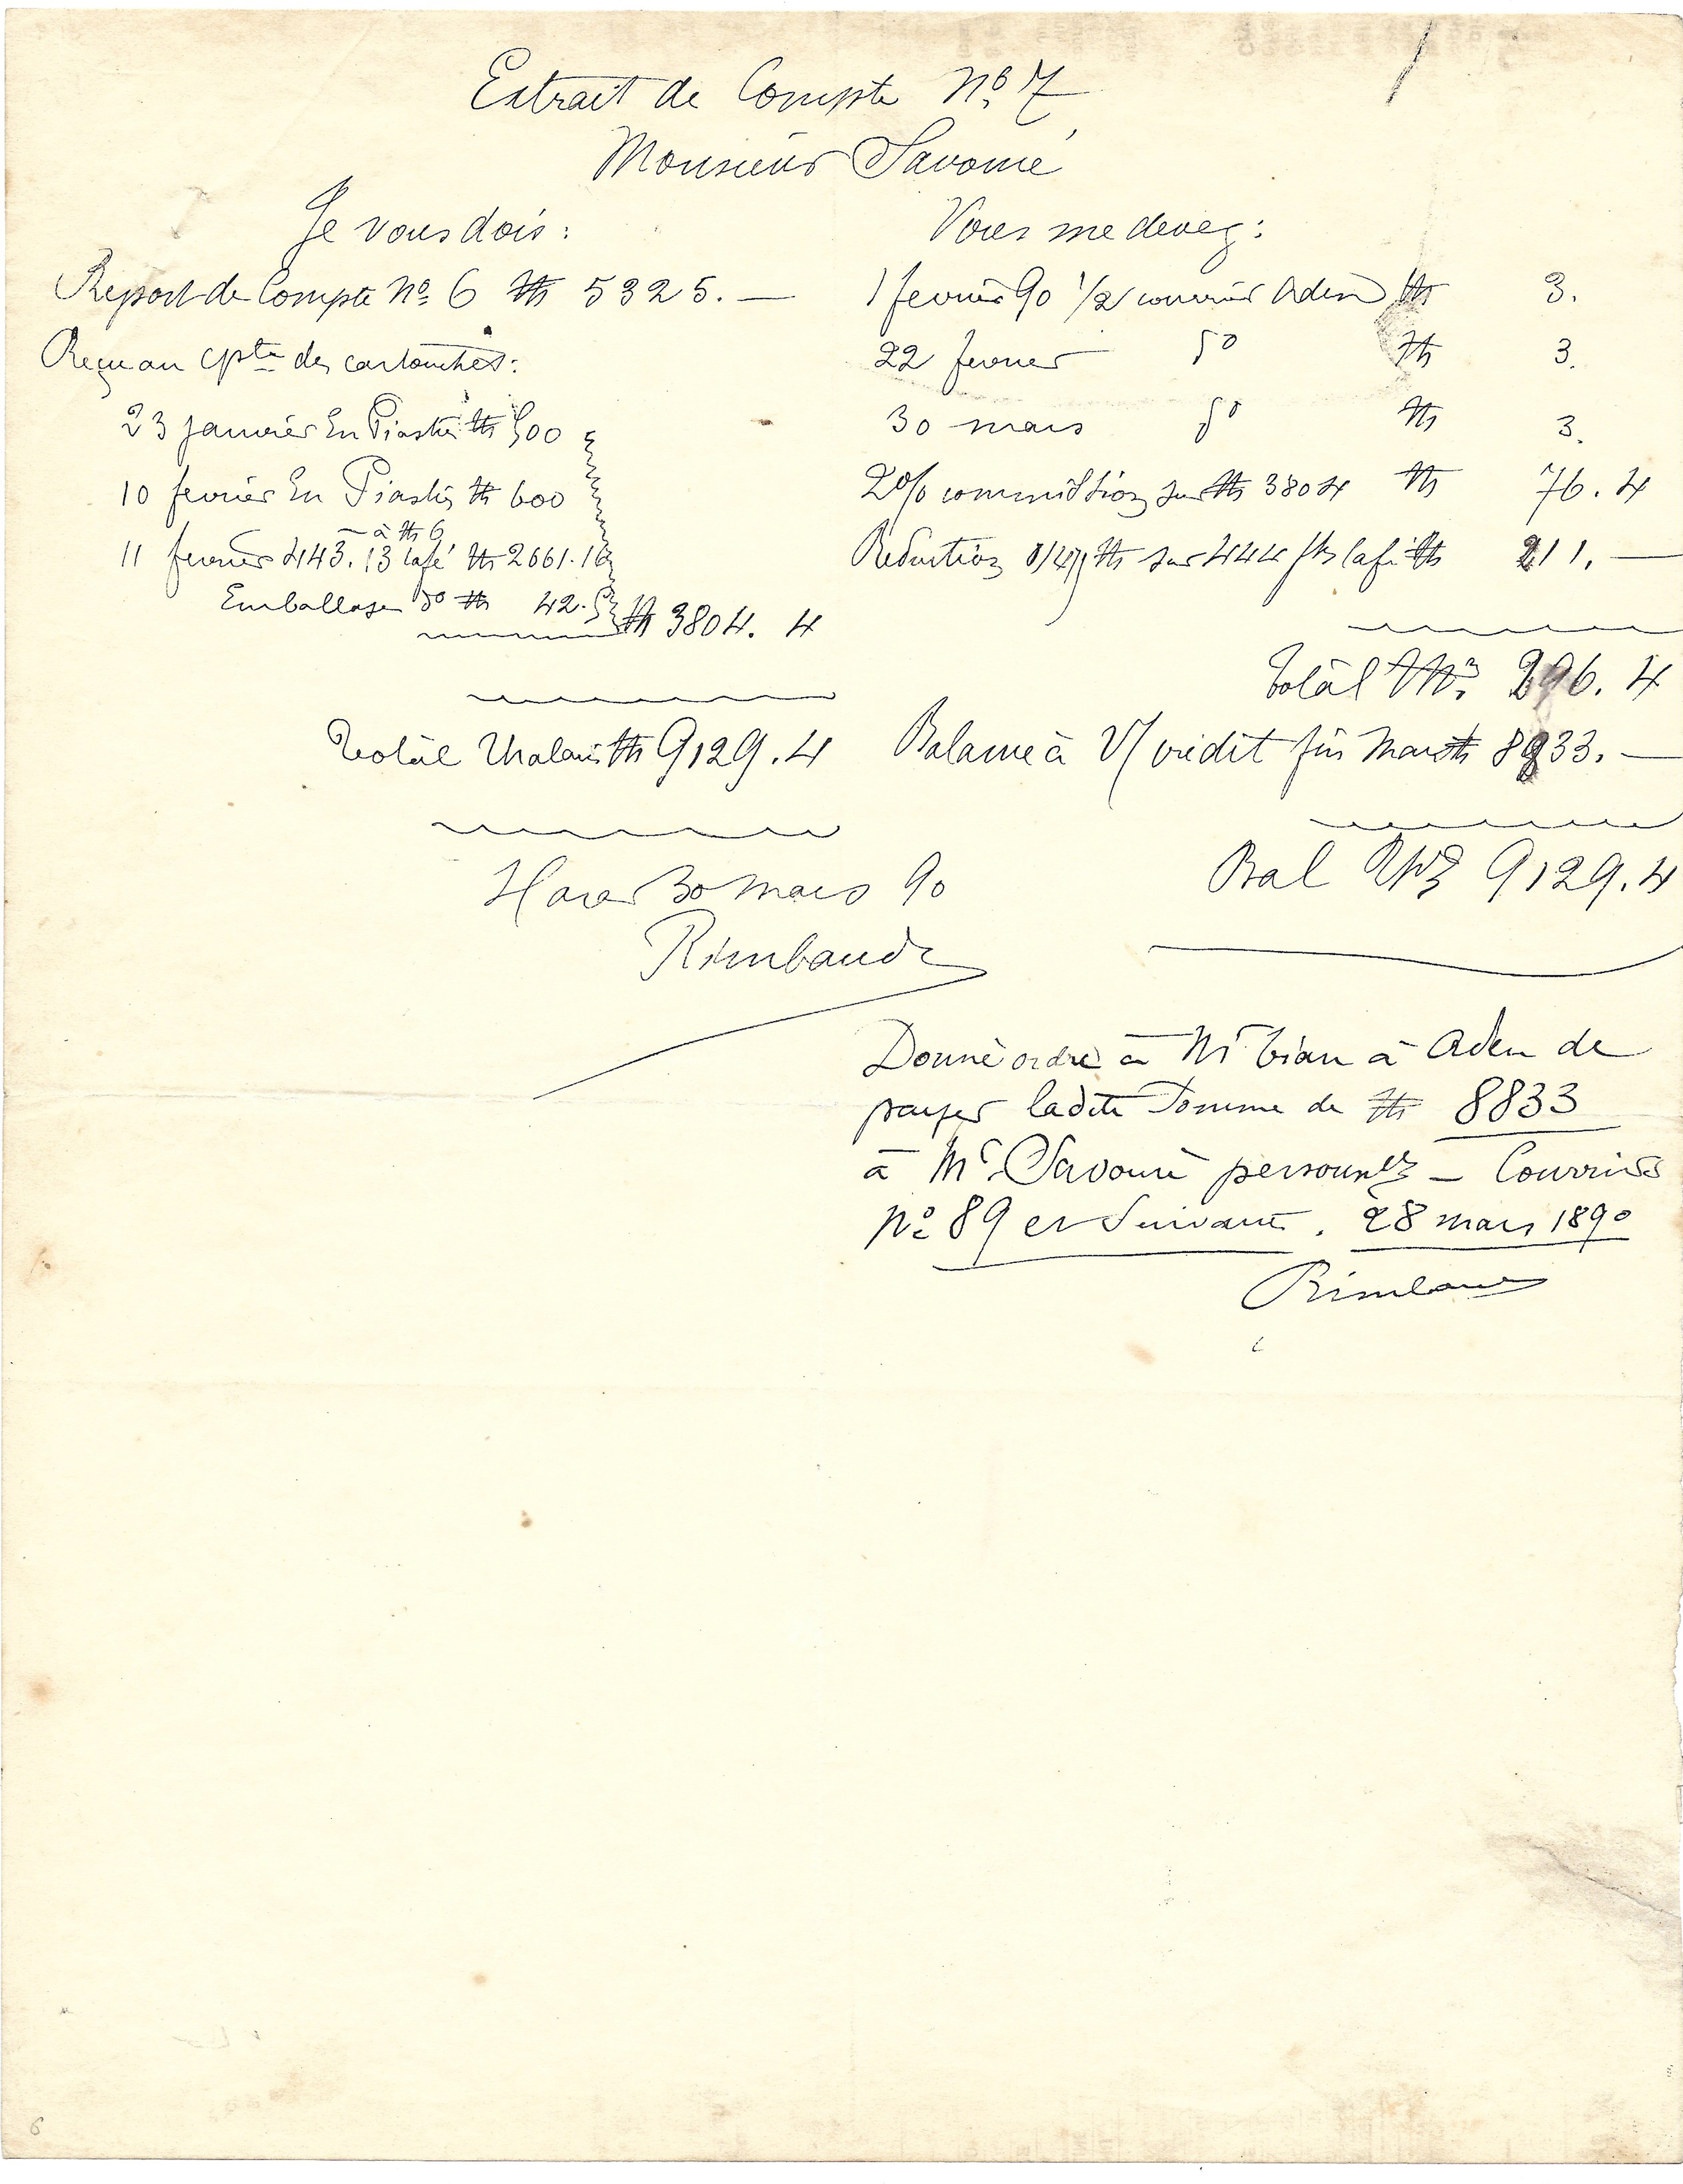 Extrait de Compte Nº 7
Monsieur Savouré
Je vous dois :
Report de Compte Nº 6 Th 5325. —
Reçu au cpte des cartouches :
23 janvier En Piastres Th 500
10 fevrier En Piastres Th 600
— à Th 6
11 fevrier 443.13 café Th 2661.16
Emballage dº Th 42.5
Th 3804. 4
Total Thalaris Th 9129.4
Harar 30 mars 90
Rimbaud
Vous me devez :
1 fevrier 90 1/2 courrier Aden Th 3.
22 fevrier dº Th 3.
30 mars dº Th 3.
2% commission sur Th 3804 Th 76. 4
Reduction Th sur 444 café Th 211. —
Total Th 296. 4
Balance à V/ crédit fin Mars Th 8833. —
Bal 9129.4
Donné ordre à Mr Tian à Aden de
payer ladite Somme de Th 8833
à Mr Savouré — Courriers
Nº 89 et Suivant. 28 mars 1890
Rimbaud
6